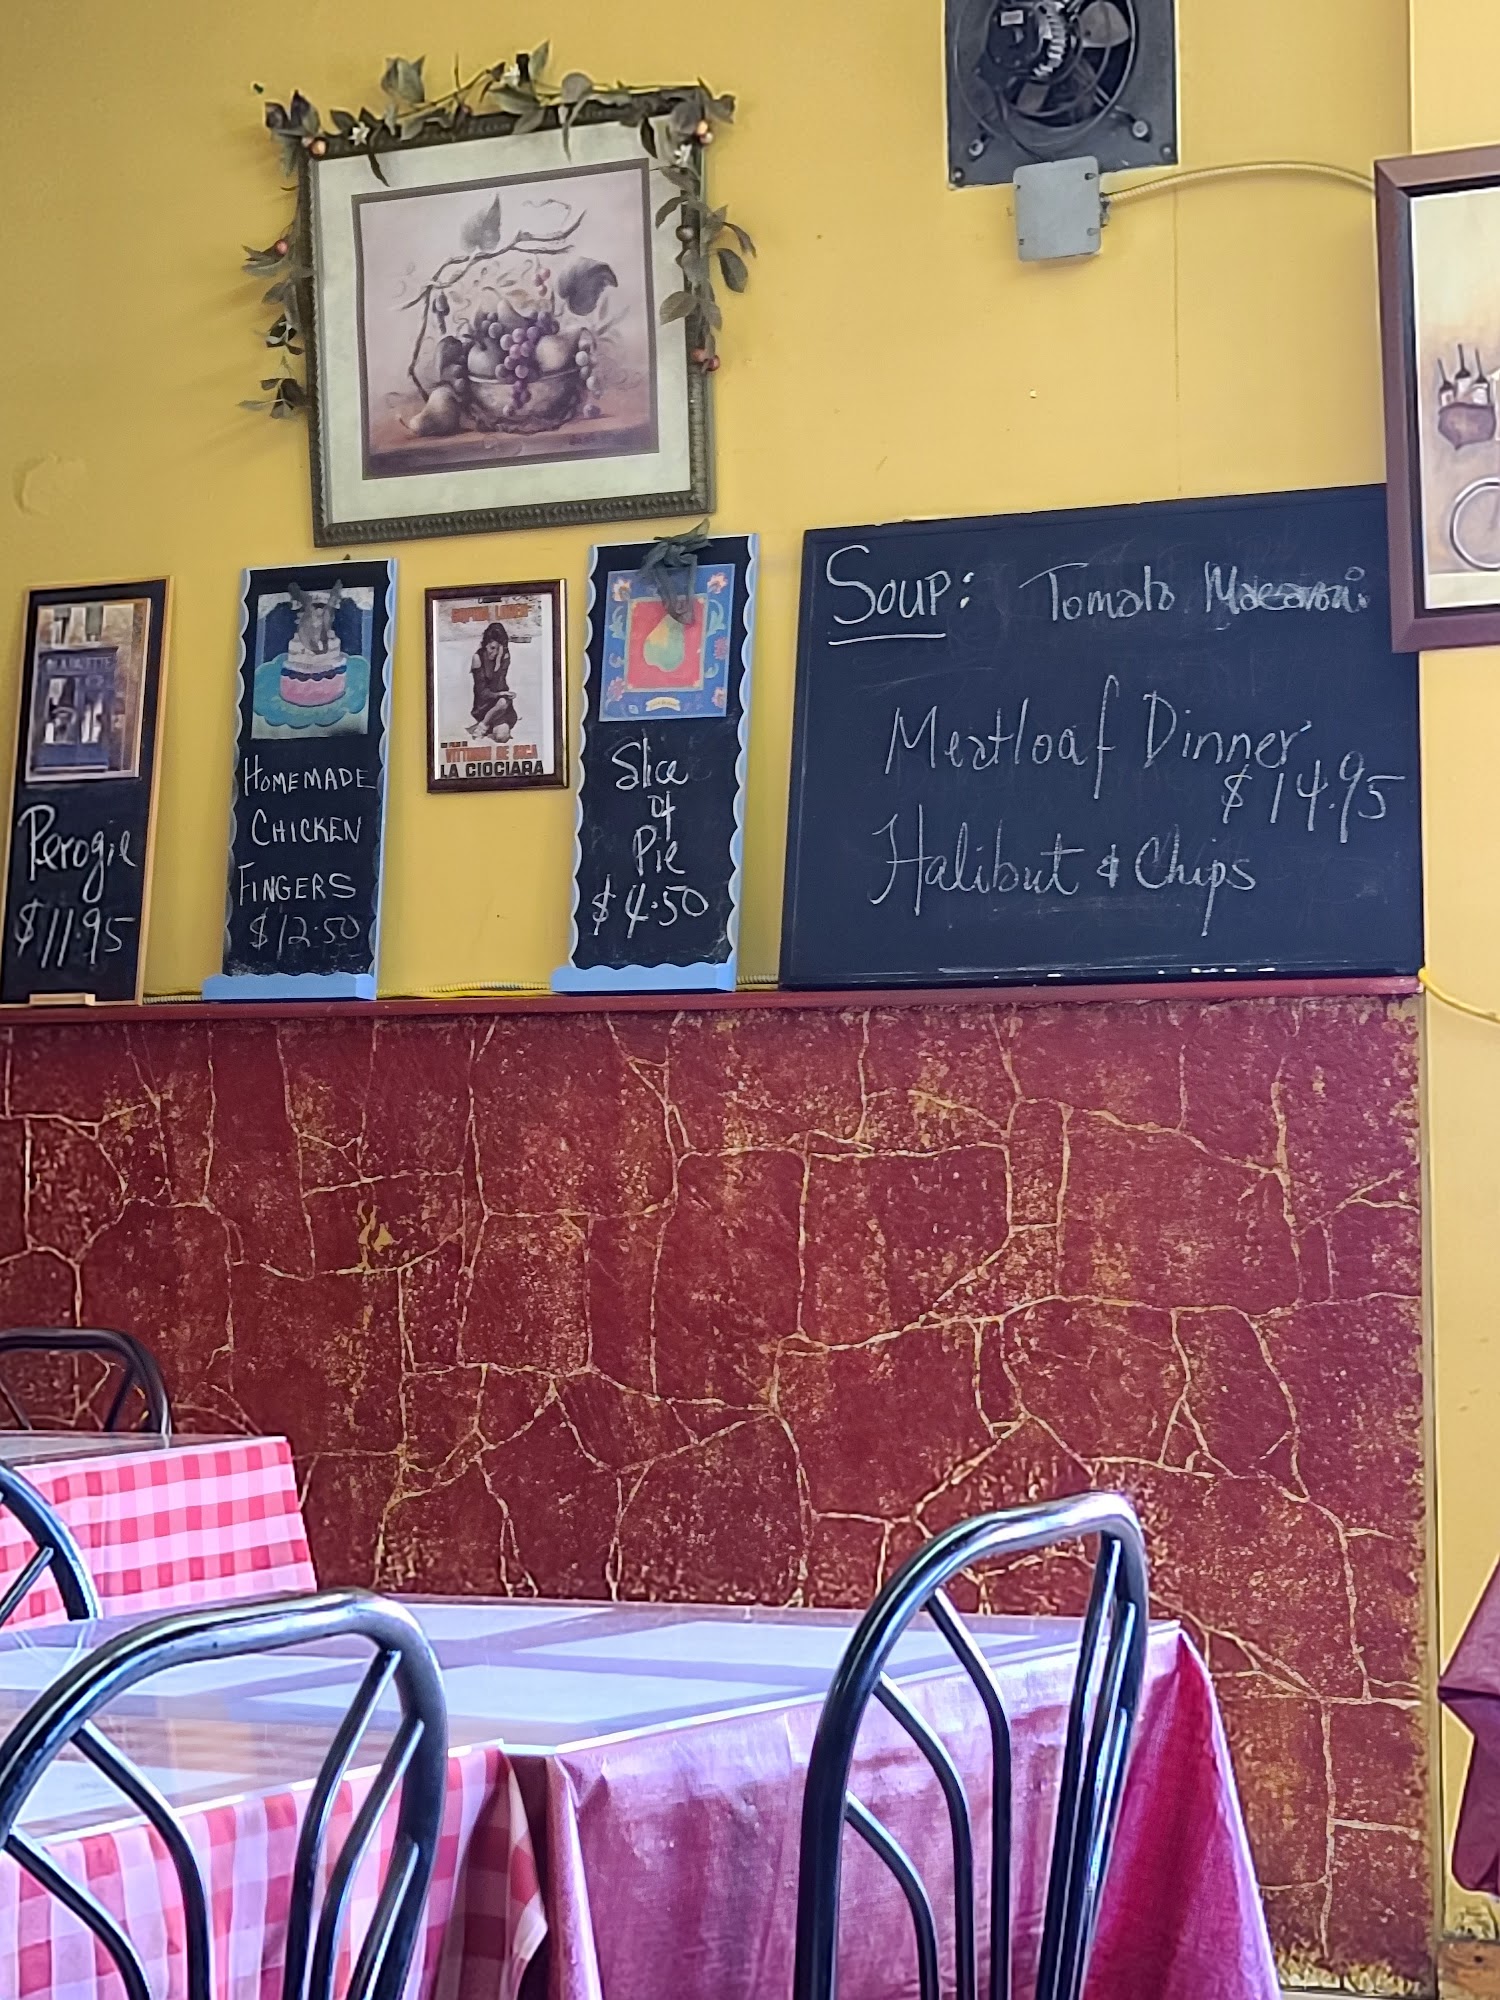 Perogie
$11.95
HOMEMADE
CHICKEN
FINGERS
$12.50
SOPHIA LOREN
VITTORIO DE SICA
LA CIOCIARA
Slice
of
Pie
$4.50
SOUP: Tomato Macaroni
Meatloaf Dinner
$14.95
Halibut & Chips